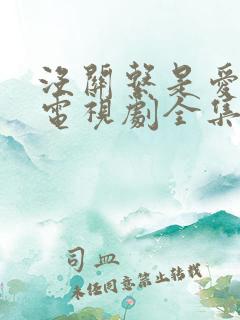 沒關繫是愛
電視劇全集
司血
未经同意禁止转载